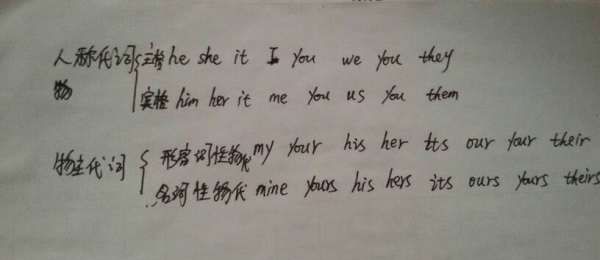 人称代词 主格 he she it I you we you they
物
宾格 him her it me you us you them
物主代词 形容词性物代 my your his her its our your their
名词性物代 mine yours his hers its ours yours theirs